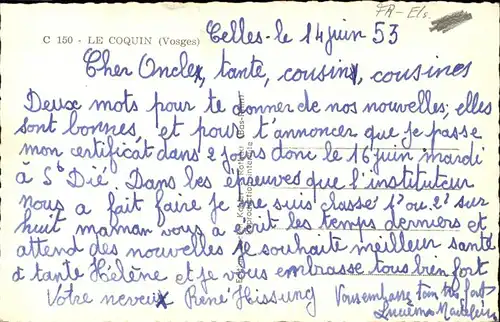 FR-Els.
C 150 - LE COQUIN (Vosges)
Celles-le 14 juin 53
Cher Oncle, tante, cousin, cousines
Deux mots pour te donner de nos nouvelles; elles
sont bonnes, et pour t'annoncer que je passe
mon certificat dans 2 jours donc le 16 juin mardi
à St Dié. Dans les épreuves que l'instituteur
nous a fait faire je me suis classé 1er ou 2e sur
huit maman vous a écrit les temps derniers et
attend des nouvelles je souhaite meilleur santé
à tante Hélène et je vous embrasse tous bien fort
Votre neveu René Hissung
Vous embrasse tous très fort
Lucienne